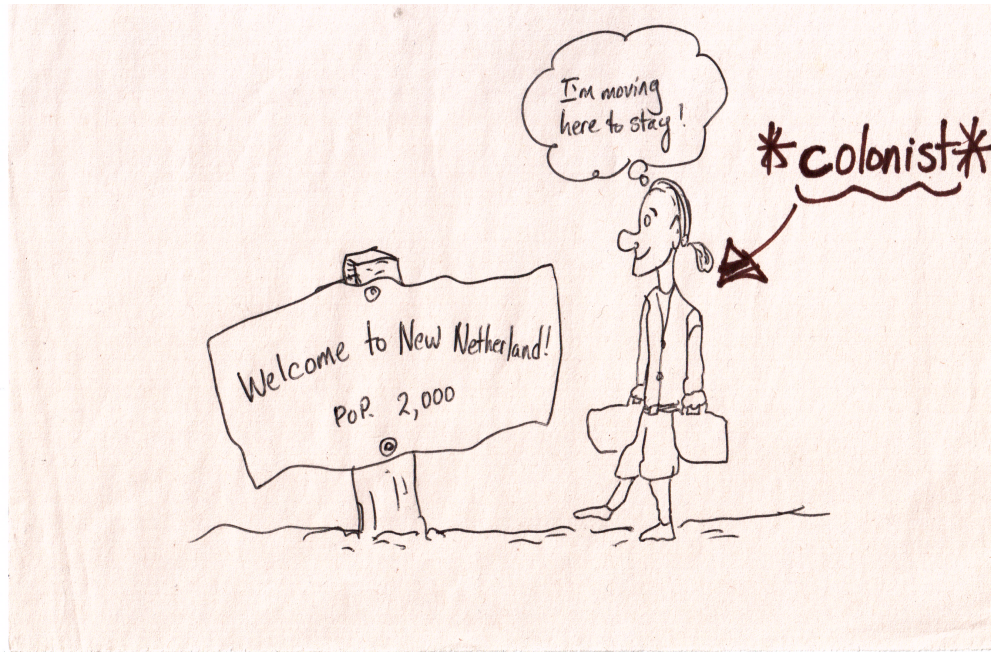 I'm moving
here to stay!
*colonist*
Welcome to New Netherland!
POP. 2,000